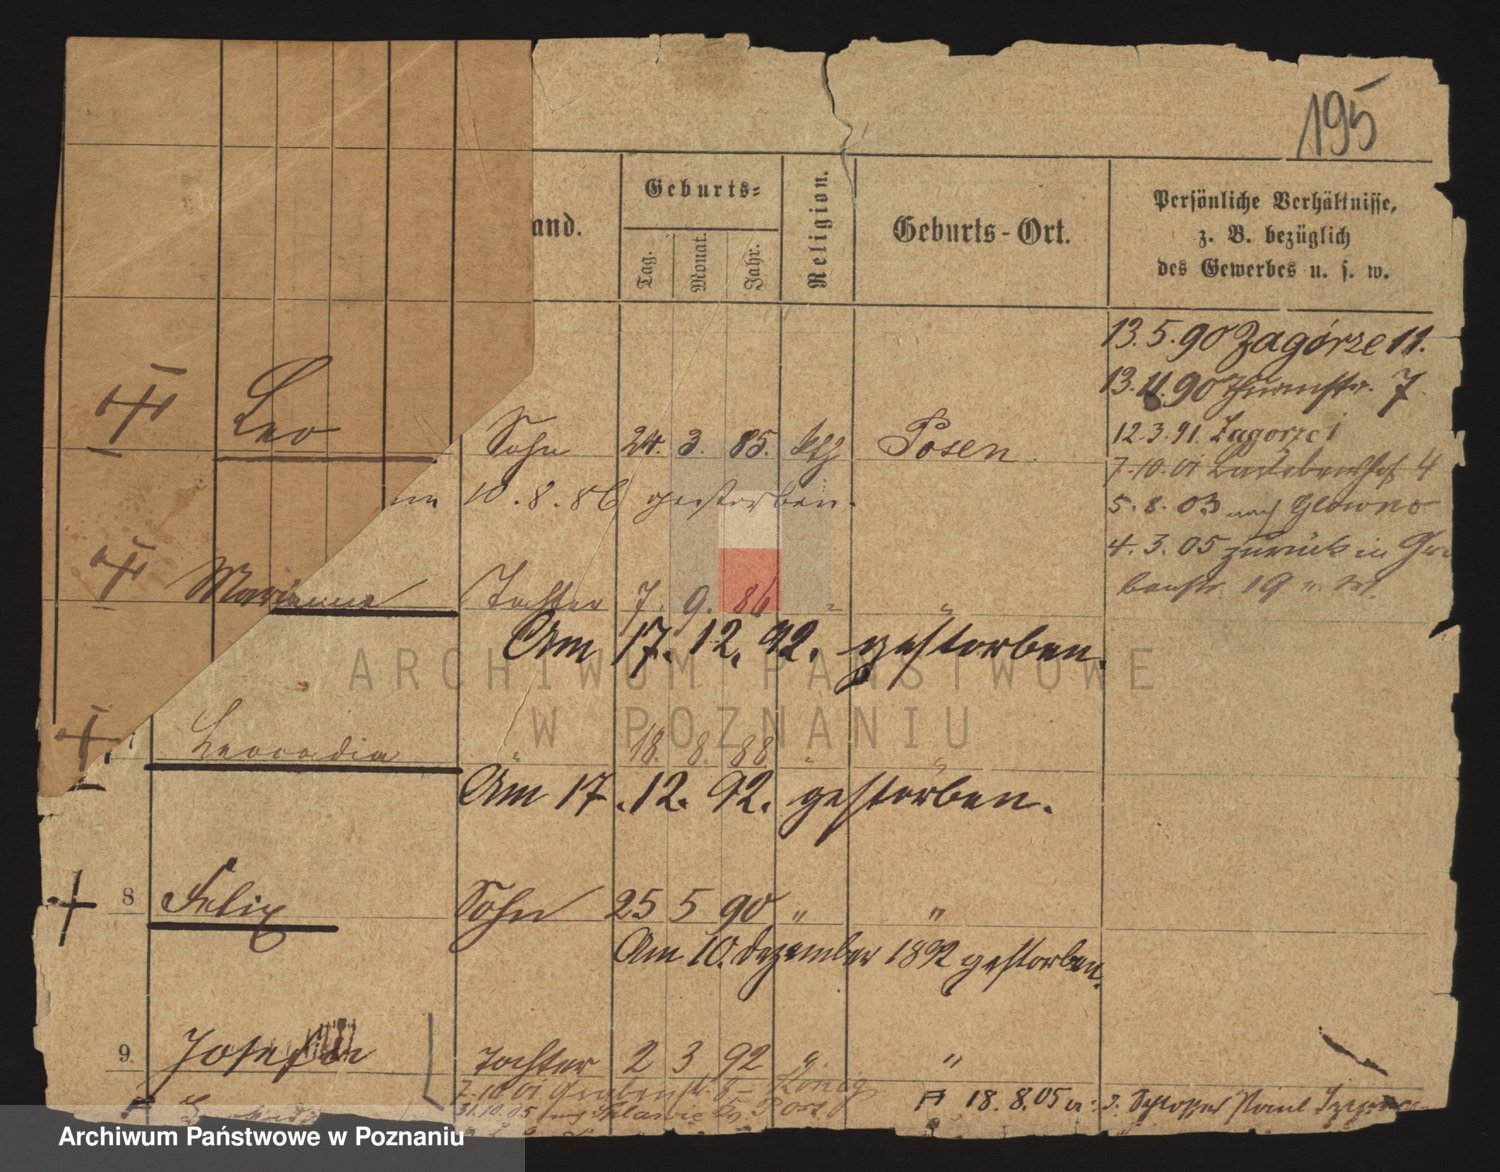 195
and.
Geburts=
Tag.
Monat.
Jahr.
Religion.
Geburts-Ort.
Persönliche Verhältnisse,
z. B. bezüglich
des Gewerbes u. s. w.
13.5.90 Zagórze 11.
13.11.90 Thurmstr. 7
12.3.91. Zagorze 1
7.10.01 4
5.8.03 nach Glowno
4.3.05 zurück in
benstr. 19
Leo Sohn 24. 3. 85. kth Posen
10.8.86 gestorben.
Marianna Tochter 7. 9. 86 " "
Am 17.12.92. gestorben.
ARCHIWUM PAŃSTWOWE
W POZNANIU
Leocadia " 18. 8. 88 " "
Am 17.12.92. gestorben.
8 Felix Sohn 25 5 90 " "
Am 10. Dezember 1892 gestorben.
9. Tochter 2 3 92 " "
7.10.01
31.10.05
18.8.05 Schlosser
Archiwum Państwowe w Poznaniu